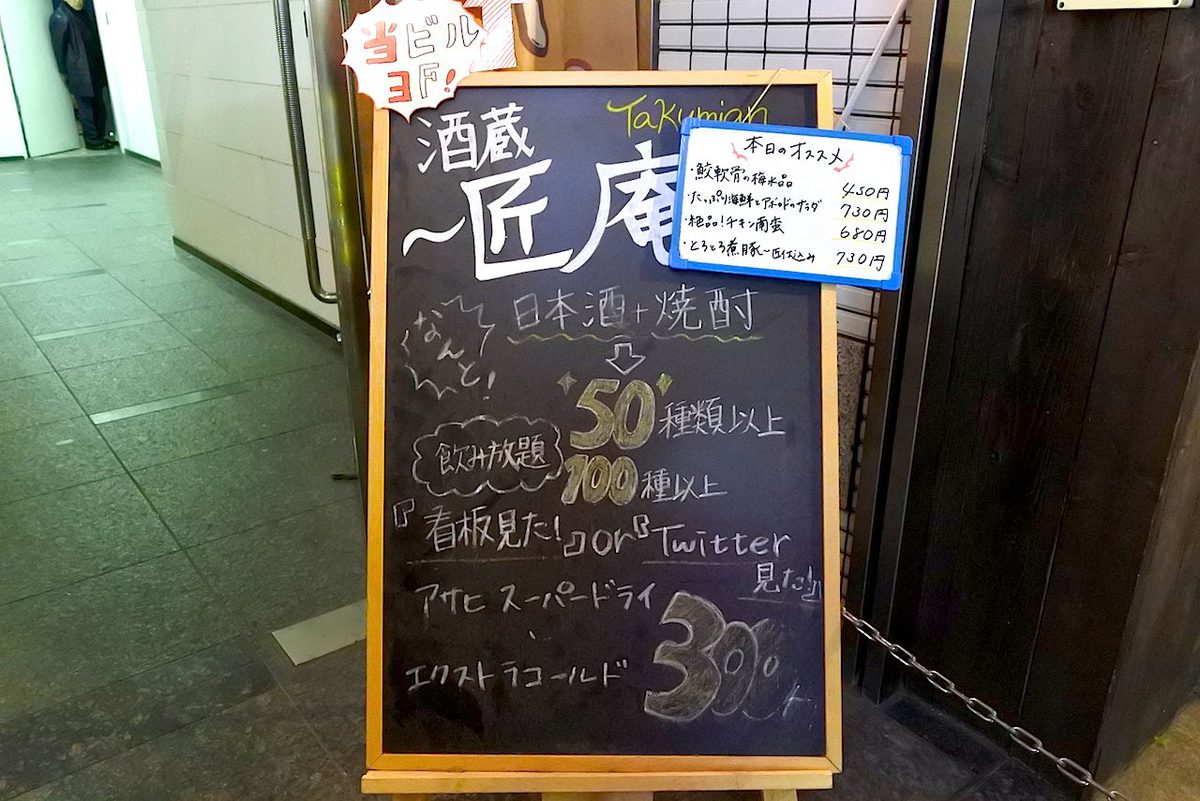 当ビル
3F!
酒蔵
Takumian
～匠庵
本日のオススメ
・鮫軟骨の梅水晶 450円
・たっぷり海鮮とアボカドのサラダ 730円
・絶品!チキン南蛮 680円
・とろとろ煮豚〜匠仕込み 730円
なんと!
日本酒+焼酎
50種類以上
飲み放題
100種以上
『看板見た!』or『Twitter
見た』
アサヒ スーパードライ
エクストラコールド
300